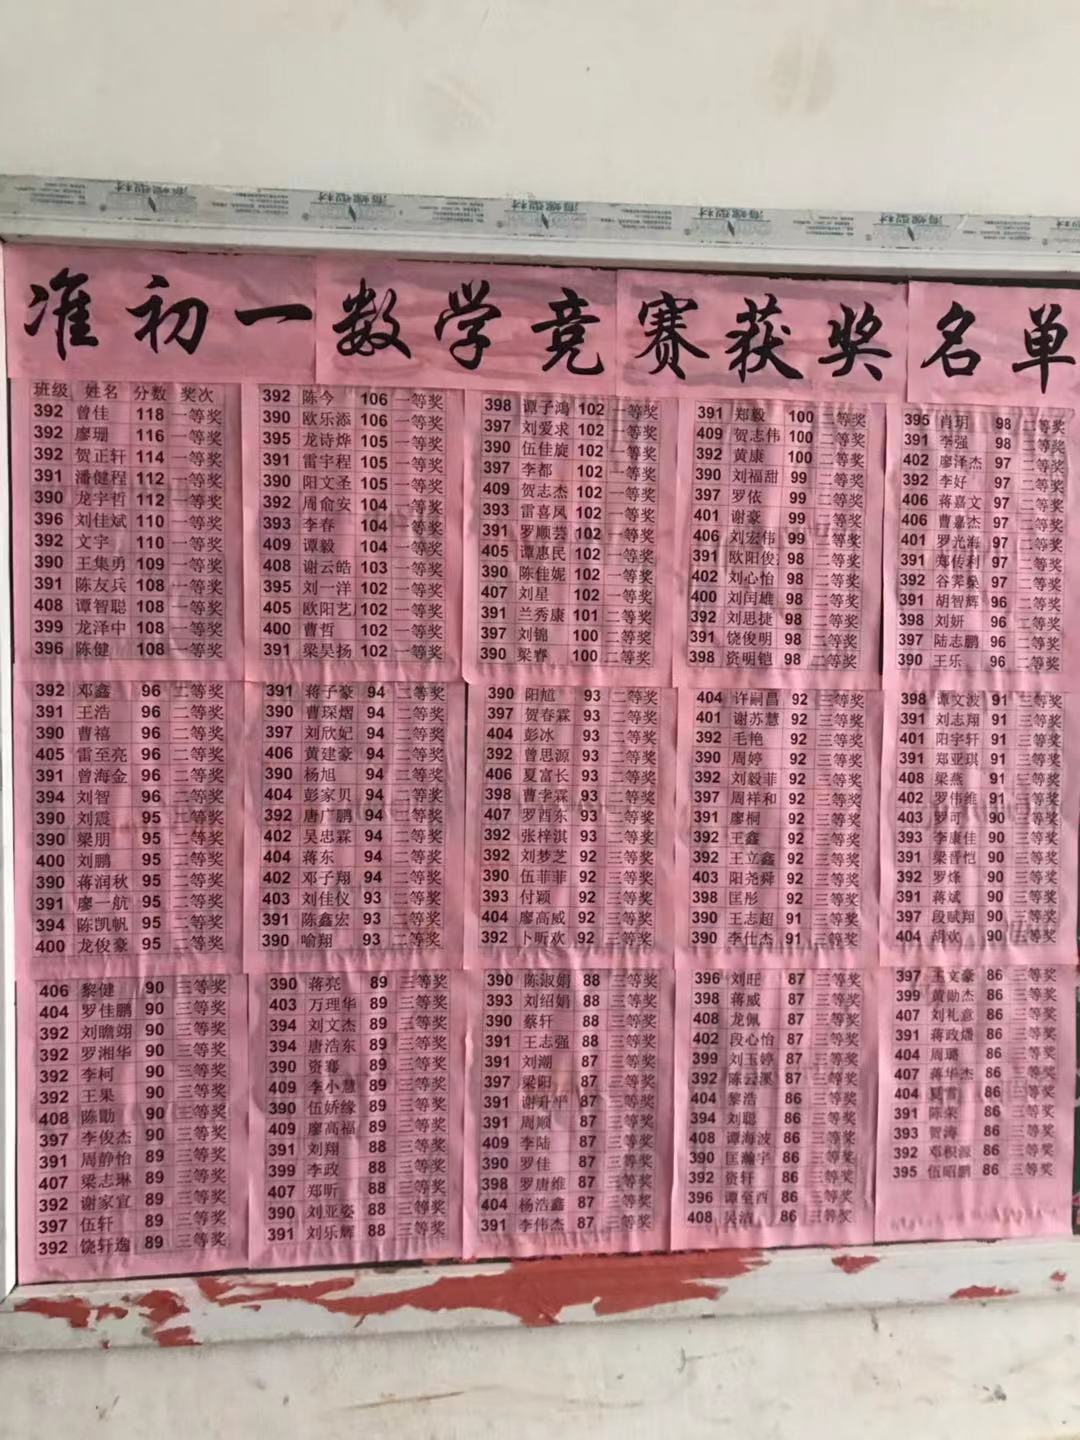 海螺型材
准初一数学竞赛获奖名单
班级 姓名 分数 奖次
392 曾佳 118 一等奖
392 廖珊 116 一等奖
392 贺正轩 114 一等奖
391 潘健程 112 一等奖
390 龙宇哲 112 一等奖
396 刘佳斌 110 一等奖
392 文宇 110 一等奖
390 王集勇 109 一等奖
391 陈友兵 108 一等奖
408 谭智聪 108 一等奖
399 龙泽中 108 一等奖
396 陈健 108 一等奖
392 陈今 106 一等奖
390 欧乐添 106 一等奖
395 龙诗烨 105 一等奖
391 雷宇程 105 一等奖
390 阳文圣 105 一等奖
392 周俞安 104 一等奖
393 李春 104 一等奖
409 谭毅 104 一等奖
408 谢云皓 103 一等奖
395 刘一洋 102 一等奖
405 欧阳艺 102 一等奖
400 曹哲 102 一等奖
391 梁昊扬 102 一等奖
398 谭子鸿 102 一等奖
397 刘爱求 102 一等奖
390 伍佳旋 102 一等奖
397 李都 102 一等奖
409 贺志杰 102 一等奖
393 雷喜凤 102 一等奖
391 罗顺芸 102 一等奖
405 谭惠民 102 一等奖
390 陈佳妮 102 一等奖
407 刘星 102 一等奖
391 兰秀康 101 二等奖
397 刘锦 100 二等奖
390 梁睿 100 二等奖
391 郑毅 100 二等奖
409 贺志伟 100 二等奖
392 黄康 100 二等奖
390 刘福甜 99 二等奖
397 罗依 99 二等奖
401 谢豪 99 二等奖
406 刘宏伟 99 二等奖
391 欧阳俊 98 二等奖
402 刘心怡 98 二等奖
400 刘闰雄 98 二等奖
392 刘思捷 98 二等奖
391 饶俊明 98 二等奖
398 资明铠 98 二等奖
395 肖玥 98 二等奖
391 李强 98 二等奖
402 廖泽杰 97 二等奖
392 李好 97 二等奖
406 蒋嘉文 97 二等奖
406 曹嘉杰 97 二等奖
401 罗光海 97 二等奖
391 郑传利 97 二等奖
392 谷霁燊 97 二等奖
391 胡智辉 96 二等奖
398 刘妍 96 二等奖
397 陆志鹏 96 二等奖
390 王乐 96 二等奖
392 邓鑫 96 二等奖
391 王浩 96 二等奖
390 曹禧 96 二等奖
405 雷至亮 96 二等奖
391 曾海金 96 二等奖
394 刘智 96 二等奖
390 刘震 95 二等奖
390 梁朋 95 二等奖
400 刘鹏 95 二等奖
390 蒋润秋 95 二等奖
391 廖一航 95 二等奖
394 陈凯帆 95 二等奖
400 龙俊豪 95 二等奖
391 蒋子豪 94 二等奖
390 曹琛熠 94 二等奖
397 刘欣妃 94 二等奖
406 黄建豪 94 二等奖
390 杨旭 94 二等奖
404 彭家贝 94 二等奖
392 唐广鹏 94 二等奖
402 吴忠霖 94 二等奖
404 蒋东 94 二等奖
402 邓子翔 94 二等奖
403 刘佳仪 93 二等奖
391 陈鑫宏 93 二等奖
390 喻翔 93 二等奖
390 阳馗 93 二等奖
397 贺春霖 93 二等奖
404 彭冰 93 二等奖
392 曾思源 93 二等奖
406 夏富长 93 二等奖
398 曹孛霖 93 二等奖
407 罗酉东 93 二等奖
392 张梓淇 93 二等奖
392 刘梦芝 92 三等奖
390 伍菲菲 92 三等奖
393 付颖 92 三等奖
404 廖高威 92 三等奖
392 卜昕欢 92 三等奖
404 许嗣昌 92 三等奖
401 谢苏慧 92 三等奖
392 毛艳 92 三等奖
390 周婷 92 三等奖
392 刘毅菲 92 三等奖
397 周祥和 92 三等奖
391 廖桐 92 三等奖
392 王鑫 92 三等奖
392 王立鑫 92 三等奖
403 阳尧舜 92 三等奖
398 匡彤 92 三等奖
390 王志超 91 三等奖
390 李仕杰 91 三等奖
398 谭文波 91 三等奖
391 刘志翔 91 三等奖
401 阳宇轩 91 三等奖
391 郑亚琪 91 三等奖
408 梁燕 91 三等奖
402 罗伟维 91 三等奖
403 罗可 90 三等奖
393 李康佳 90 三等奖
391 梁晋恺 90 三等奖
392 罗烽 90 三等奖
391 蒋斌 90 三等奖
397 段赋翔 90 三等奖
404 胡欢 90 三等奖
406 黎健 90 三等奖
404 罗佳鹏 90 三等奖
392 刘瞻翊 90 三等奖
392 罗湘华 90 三等奖
392 李柯 90 三等奖
392 王果 90 三等奖
408 陈勖 90 三等奖
397 李俊杰 90 三等奖
391 周静怡 89 三等奖
407 梁志琳 89 三等奖
392 谢家宣 89 三等奖
397 伍轩 89 三等奖
392 饶轩逸 89 三等奖
390 蒋亮 89 三等奖
403 万理华 89 三等奖
394 刘文杰 89 三等奖
394 唐浩东 89 三等奖
390 资骞 89 三等奖
409 李小慧 89 三等奖
390 伍娇缘 89 三等奖
409 廖高福 89 三等奖
391 刘翔 88 三等奖
399 李政 88 三等奖
407 郑昕 88 三等奖
390 刘亚姿 88 三等奖
391 刘乐辉 88 三等奖
390 陈淑娟 88 三等奖
393 刘绍娟 88 三等奖
390 蔡轩 88 三等奖
391 王志强 88 三等奖
391 刘潮 87 三等奖
397 梁阳 87 三等奖
391 谢升平 87 三等奖
391 周顺 87 三等奖
409 李陆 87 三等奖
390 罗佳 87 三等奖
398 罗唐维 87 三等奖
404 杨浩鑫 87 三等奖
391 李伟杰 87 三等奖
396 刘旺 87 三等奖
398 蒋威 87 三等奖
408 龙佩 87 三等奖
402 段心怡 87 三等奖
399 刘玉婷 87 三等奖
392 陈云溪 87 三等奖
404 黎浩 86 三等奖
394 刘聪 86 三等奖
408 谭海波 86 三等奖
390 匡瀚宇 86 三等奖
392 资轩 86 三等奖
396 谭至西 86 三等奖
408 吴洁 86 三等奖
397 王文豪 86 三等奖
399 黄勋杰 86 三等奖
407 刘礼意 86 三等奖
391 蒋政燔 86 三等奖
404 周璐 86 三等奖
407 蒋华杰 86 三等奖
404 夏雪 86 三等奖
391 陈荣 86 三等奖
393 贺涛 86 三等奖
392 邓积源 86 三等奖
395 伍昭鹏 86 三等奖